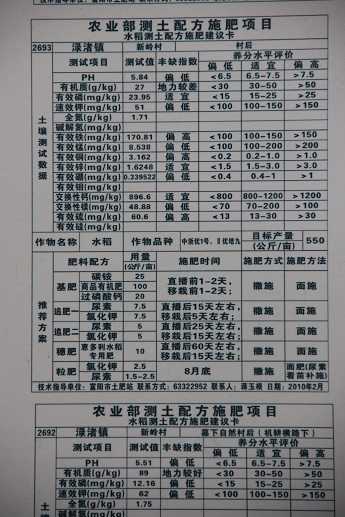 农业部测土配方施肥项目
水稻测土配方施肥建议卡
2693 渌渚镇 新岭村 村后
土壤测试数据
测试项目 测试值 丰缺指数 养分水平评价
偏低 适宜 偏高
PH 5.84 偏低 <6.5 6.5-7.5 >7.5
有机质(g/kg) 27 地力较差 <30 30-50 >50
有效磷(mg/kg) 23.95 适宜 <15 15-25 >25
速效钾(mg/kg) 51 偏低 <100 100-150 >150
全氮(g/kg) 1.71
碱解氮(mg/kg)
有效铁(mg/kg) 170.81 偏高 <100 100-150 >150
有效锰(mg/kg) 8.538 偏低 <100 100-200 >200
有效铜(mg/kg) 3.162 偏高 <0.2 0.2-1.0 >1.0
有效锌(mg/kg) 1.6248 适宜 <1.5 1.5-3.0 >3.0
有效硼(mg/kg) 0.339522 偏低 <0.4 0.4-1 >1
有效钼(mg/kg)
交换性钙(mg/kg) 896.6 适宜 <800 800-1200 >1200
交换性镁(mg/kg) 48.88 偏低 <70 70-200 >100
有效硫(mg/kg) 60.6 偏高 <13 13-30 >30
有效硅(mg/kg)
作物名称 水稻 作物品种 中浙优1号、Ⅱ优培九 目标产量(公斤/亩) 550
推荐方案
肥料配方 用量(公斤/亩) 施肥时间 施肥方式 施肥方法
基肥 碳铵 25 直播前1-2天, 撒施 面施
商品有机肥 100 移栽前1-2天;
过磷酸钙 20
追肥一 尿素 7.5 直播后15天左右, 撒施 面施
氯化钾 7.5 移栽后5天左右;
追肥二 尿素 5 直播后25天左右, 撒施 面施
氯化钾 5 移栽后15天左右;
穗肥 惠多利水稻专用肥 10 直播后60天左右, 撒施 面施
移栽后15天左右;
粒肥 氯化钾 2.5 8月底 撒施 面肥(尿素看苗补施)
尿素 1.5-2.5
技术指导单位:富阳市土肥站 联系方式:63322952 联系人:蒋玉根 日期:2010年2月
农业部测土配方施肥项目
水稻测土配方施肥建议卡
2692 渌渚镇 新岭村 墓下自然村后(机耕横路下)
测试项目 测试值 丰缺指数 养分水平评价
偏低 适宜 偏高
PH 5.51 偏低 <6.5 6.5-7.5 >7.5
有机质(g/kg) 89 地力较好 <30 30-50 >50
有效磷(mg/kg) 12.16 偏低 <15 15-25 >25
速效钾(mg/kg) 62 偏低 <100 100-150 >150
全氮(g/kg) 1.75